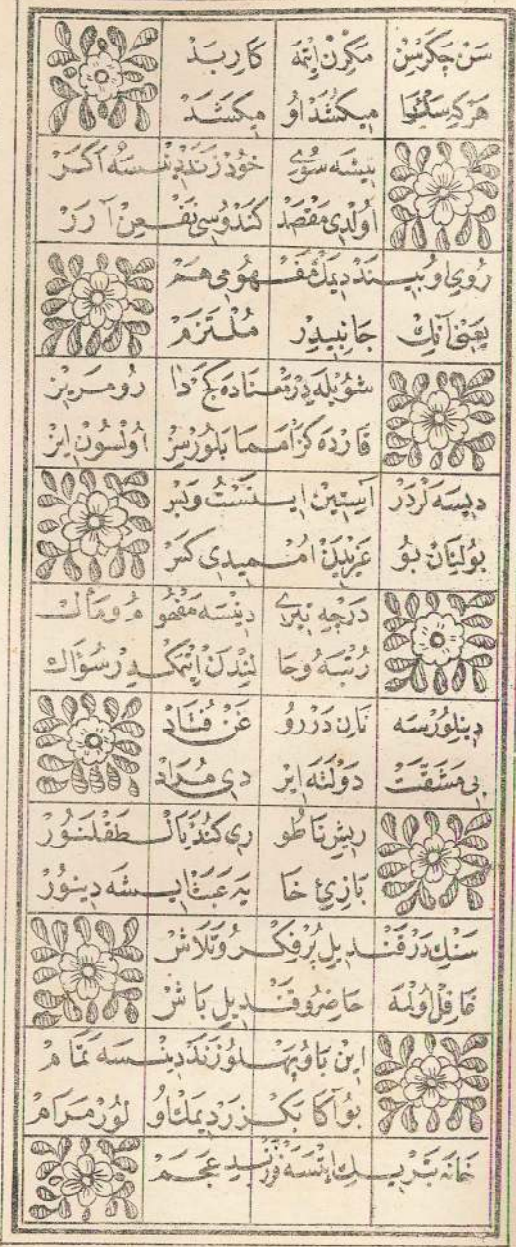 سن چكرسن مكرن ايتمه كار بد
هر كه سكا ميكشد او ميكشد
پيشه سوى خود زند دينسه اكر
اولدى مقصد كندوسى نفعن آرر
روى او بيند ديمك مفهومى هم
يعنى آنك جانبيدر ملتزم
شويله در معناده كج دا رو مريز
قارده كز اما بلورسز اولسون ايز
ديسه لر در آستين اينست و بس
بوليان بو غريدن اميدى كس
درجه پرى دينسه مفهو مال
رتبه و حا لندن ايتمكدر سؤال
دينلورسه نان در روغن فتاد
بى مشقت دولته ايردى مراد
ريش نا طورى كند بال طقلنور
بازئ خا يه عبث ايشه دينور
سنك در قنديل پر فكر و تلاش
غافل اولمه حاضر و قنديل باش
اين پا و پهلو زند دينسه تمام
بو آكا بكزر ديمك اولور مرام
خانه بر ايتسه فرزند عجم